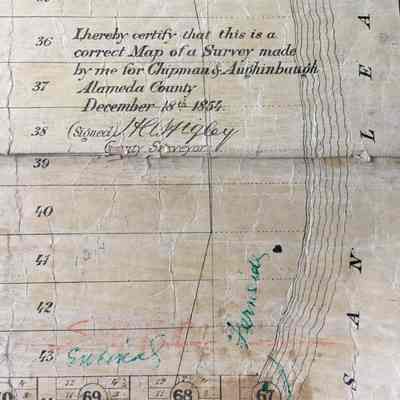 36
I hereby certify that this is a
correct Map of a Survey made
by me for Chipman & Aughinbaugh
37
Alameda County
December 18th 1854.
38
(Signed) H.A. Higley
County Surveyor
39
40
41
42
43
Encinal
Fernside
SAN LEA
12
11
69
12
11
68
67